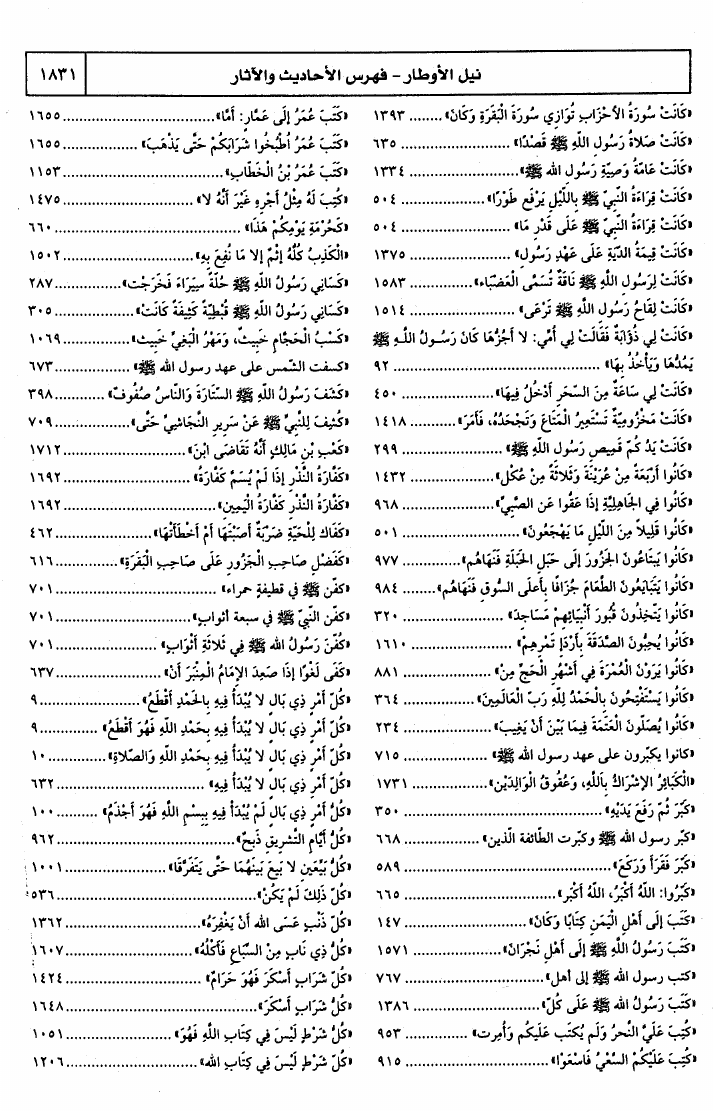 نيل الأوطار - فهرس الأحاديث والآثار ١٨٣١
«كَانَتْ سُورَةُ الأَحْزَابِ تُوَازِي سُورَةَ الْبَقَرَةِ وَكَانَ» ........ ١٣٩٣
«كَانَتْ صَلاةُ رَسُولِ اللهِ ﷺ قَصْدًا» ........ ٦٣٥
«كَانَتْ عَامَّةُ وَصِيَّةِ رَسُولِ الله ﷺ» ........ ١٣٣٤
«كَانَتْ قِرَاءَةُ النَّبِيِّ ﷺ بِاللَّيْلِ يَرْفَع طَوْرًا» ........ ٥٠٤
«كَانَتْ قِرَاءَةُ النَّبِيِّ ﷺ عَلَى قَدْرِ مَا» ........ ٥٠٤
«كَانَتْ قِيمَةُ الدِّيَةِ عَلَى عَهْدِ رَسُولِ» ........ ١٣٧٥
«كَانَتْ لِرَسُولِ اللَّهِ ﷺ نَاقَةٌ تُسَمَّى الْعَضْبَاء» ........ ١٥٨٣
«كَانَتْ لِقَاحُ رَسُولِ اللَّهِ ﷺ تَرْعَى» ........ ١٥١٤
«كَانَتْ لِي ذُؤَابَةٌ فَقَالَتْ لِي أُمِّي: لا أَجُزُّهَا كَانَ رَسُولُ اللهِ ﷺ
يَمُدُّهَا وَيَأْخُذُ بِهَا» ........ ٩٢
«كَانَتْ لِي سَاعَةٌ مِنَ السَّحَرِ أَدْخُلُ فِيهَا» ........ ٤٥٠
«كَانَتْ مَخْزُومِيَّةٌ تَسْتَعِيرُ الْمَتَاعَ وَتَجْحَدُهُ، فَأَمَرَ» ........ ١٤١٨
«كَانَتْ يَدُ كُمِّ قَمِيصِ رَسُولِ اللهِ ﷺ» ........ ٢٩٩
«كَانُوا أَرْبَعَةً مِنْ عُرَيْنَةَ وَثَلاثَةً مِنْ عُكْلٍ» ........ ١٤٣٢
«كَانُوا فِي الْجَاهِلِيَّةِ إِذَا عَقُّوا عَنِ الصَّبِيِّ» ........ ٩٦٨
«كَانُوا قَلِيلاً مِنَ اللَّيْلِ مَا يَهْجَعُونَ» ........ ٥٠١
«كَانُوا يَبْتَاعُونَ الْجَزُورَ إِلَى حَبَلِ الْحَبَلَةِ فَنَهَاهُم» ........ ٩٧٧
«كَانُوا يَتَبَايَعُونَ الطَّعَامَ جُزَافًا بِأَعْلَى السُّوقِ فَنَهَاهُم» ........ ٩٨٤
«كَانُوا يَتَّخِذُونَ قُبُورَ أَنْبِيَائِهِمْ مَسَاجِدَ» ........ ٣٢٠
«كَانُوا يُحِبُّونَ الصَّدَقَةَ بِأَرْدَإِ تَمْرِهِمْ» ........ ١٦١٠
«كَانُوا يَرَوْنَ الْعُمْرَةَ فِي أَشْهُرِ الْحَجِّ مِنْ» ........ ٨٨١
«كَانُوا يَسْتَفْتِحُونَ بِالْحَمْدُ لِلَّهِ رَبِّ الْعَالَمِينَ» ........ ٣٦٤
«كَانُوا يُصَلُّونَ الْعَتَمَةَ فِيمَا بَيْنَ أَنْ يَغِيبَ» ........ ٢٣٤
«كانوا يكبّرون على عهد رسول الله ﷺ» ........ ٧١٥
«الْكَبَائِرُ الإِشْرَاكُ بِاللَّهِ، وَعُقُوقُ الْوَالِدَيْنِ» ........ ١٧٣١
«كَبَّرَ ثُمَّ رَفَعَ يَدَيْهِ» ........ ٣٥٠
«كبّر رسول الله ﷺ وكبّرت الطائفة الّذين» ........ ٦٦٨
«كَبَّرَ فَقَرَأَ وَرَكَعَ» ........ ٥٨٩
«كَبِّرُوا: اللَّهُ أَكْبَرُ، اللَّهُ أَكْبَر» ........ ٦٦٥
«كَتَبَ إِلَى أَهْلِ الْيَمَنِ كِتَابًا وَكَانَ» ........ ١٤٧
«كَتَبَ رَسُولُ اللَّهِ ﷺ إِلَى أَهْلِ نَجْرَانَ» ........ ١٥٧١
«كتب رسول الله ﷺ إلى أهل» ........ ٧٦٧
«كَتَبَ رَسُولُ الله ﷺ عَلَى كُلِّ» ........ ١٣٨٦
«كُتِبَ عَلَيَّ النَّحْرُ وَلَمْ يُكْتَب عَلَيكُم وَأُمِرت» ........ ٩٥٣
«كُتِبَ عَلَيْكُمُ السَّعْيُ فَاسْعَوْا» ........ ٩١٥
«كَتَبَ عُمَرُ إِلَى عَمَّارٍ: أَمَّا» ........ ١٦٥٥
«كَتَبَ عُمَرُ اُطْبُخُوا شَرَابَكُمْ حَتَّى يَذْهَبَ» ........ ١٦٥٥
«كَتَبَ عُمَرُ بْنُ الْخَطَّابِ» ........ ١١٥٣
«كُتِبَ لَهُ مِثْلُ أَجْرِهِ غَيْرَ أَنَّهُ لا» ........ ١٤٧٥
«كَحُرْمَةِ يَوْمِكُمْ هَذَا» ........ ٦٦٠
«الْكَذِبُ كُلُّهُ إِثْمٌ إِلا مَا نُفِعَ بِهِ» ........ ١٥٠٢
«كَسَانِي رَسُولُ اللَّهِ ﷺ حُلَّةً سِيَرَاءَ فَخَرَجْت» ........ ٢٨٧
«كَسَانِي رَسُولُ اللَّهِ ﷺ قُبْطِيَّةً كَثِيفَةً كَانَتْ» ........ ٣٠٥
«كَسْبُ الْحَجَّامِ خَبِيثٌ، وَمَهْرُ الْبَغِيِّ خَبِيث» ........ ١٠٦٩
«كسفت الشّمس على عهد رسول الله ﷺ» ........ ٦٧٣
«كَشَفَ رَسُولُ اللَّهِ ﷺ السِّتَارَةَ وَالنَّاسُ صُفُوفٌ» ........ ٣٩٨
«كُشِفَ لِلنَّبِيِّ ﷺ عَنْ سَرِيرِ النَّجَاشِيِّ حَتَّى» ........ ٧٠٩
«كَعْبِ بْنِ مَالِكٍ أَنَّهُ تَقَاضَى ابْنَ» ........ ١٧١٢
«كَفَّارَةُ النَّذْرِ إِذَا لَمْ يُسَمِّ كَفَّارَةُ» ........ ١٦٩٢
«كَفَّارَةُ النَّذْرِ كَفَّارَةُ الْيَمِينِ» ........ ١٦٩٢
«كَفَاك لِلْحَيَّةِ ضَرْبَةٌ أَصَبْتَهَا أَمْ أَخْطَأْتَهَا» ........ ٤٦٢
«كَفَضْلِ صَاحِبِ الْجَزُورِ عَلَى صَاحِبِ الْبَقَرَةِ» ........ ٦١٦
«كفّن ﷺ في قطيفةٍ حمراء» ........ ٧٠١
«كفّن النّبيّ ﷺ في سبعة أثواب» ........ ٧٠١
«كُفِّنَ رَسُولُ الله ﷺ فِي ثَلاثَةِ أَثْرَابٍ» ........ ٧٠١
«كَفَى لَغْوًا إِذَا صَعِدَ الإِمَامُ الْمِنْبَرَ أَنْ» ........ ٦٣٧
«كُلُّ أَمْرٍ ذِي بَالٍ لا يُبْدَأُ فِيهِ بِالْحَمْدِ أَقْطَعُ» ........ ٩
«كُلُّ أَمْرٍ ذِي بَالٍ لا يُبْدَأُ فِيهِ بِحَمْدِ اللَّهِ فَهُوَ أَقْطَعُ» ........ ٩
«كُلُّ أَمْرٍ ذِي بَالٍ لا يُبْدَأُ فِيهِ بِحَمْدِ اللَّهِ وَالصَّلاةِ» ........ ١٠
«كُلُّ أَمْرٍ ذِي بَالٍ لا يُبْدَأُ فِيهِ» ........ ٦٣٢
«كُلُّ أَمْرٍ ذِي بَالٍ لَمْ يُبْدَأْ فِيهِ بِبِسْمِ اللَّهِ فَهُوَ أَجْذَمُ» ........ ١٠٠
«كُلُّ أَيَّامِ التَّشْرِيقِ ذَبْحٌ» ........ ٩٦٢
«كُلُّ بَيِّعَيْنِ لا بَيعَ بَينَهُمَا حَتَّى يَتَفَرَّقَا» ........ ١٠٠١
«كُلُّ ذَلِكَ لَمْ يَكُنْ» ........ ٥٣٦
«كُلُّ ذَنْبٍ عَسَى الله أَنْ يَغْفِرَهُ» ........ ١٣٦٢
«كُلُّ ذِي نَابٍ مِنْ السِّبَاعِ فَأَكْلُهُ» ........ ١٦٠٧
«كُلُّ شَرَابٍ أَسْكَرَ فَهُوَ حَرَامٌ» ........ ١٤٢٤
«كُلُّ شَرَابٍ أَسْكَرَ» ........ ١٦٤٨
«كُلُّ شَرْطٍ لَيْسَ فِي كِتَابِ اللَّهِ فَهُوَ» ........ ١٠٥١
«كُلُّ شَرْطٍ لَيْسَ فِي كِتَابِ الله» ........ ١٢٠٦